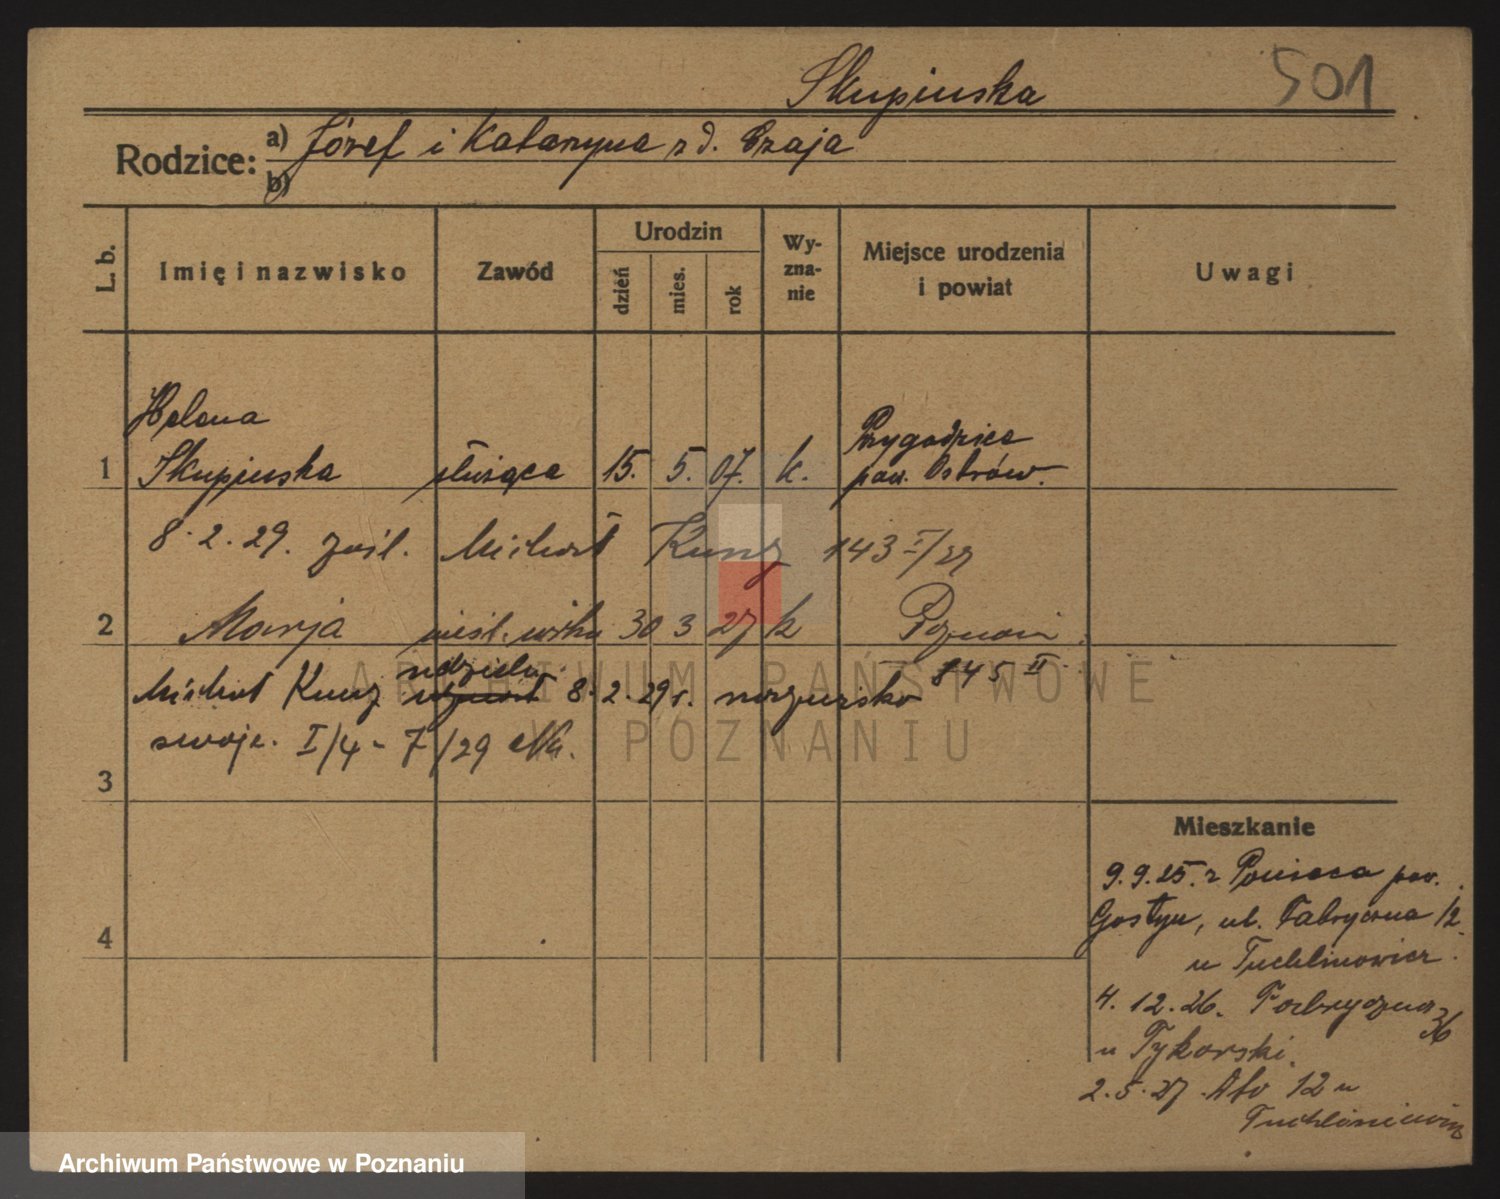 Skupinska 501
Rodzice: a) Józef i Katarzyna z d. Czaja
b)
L. b. Imię i nazwisko Zawód Urodzin dzień mies. rok Wyznanie Miejsce urodzenia i powiat Uwagi
Helena
1 Skupinska służąca 15. 5. 07. k. Przygodzice pow. Ostrów.
8.2.29. zaśl. Michał Kunz 143 I/29
2 Marja nieśl. córka 30 3 27 k Poznań.
845 II
Michał Kunz udziela 8.2.29 r. nazwisko
swoje. I/4 - 7/29
3
4
Mieszkanie
9.9.25. z Ponieca pow.
Gostyn, ul. Fabryczna 12
u Tuchlinowicz.
4.12.26. Fabryczna 36
u Tykorski.
2.5.27. 12 u
Archiwum Państwowe w Poznaniu
ARCHIWUM PAŃSTWOWE
W POZNANIU